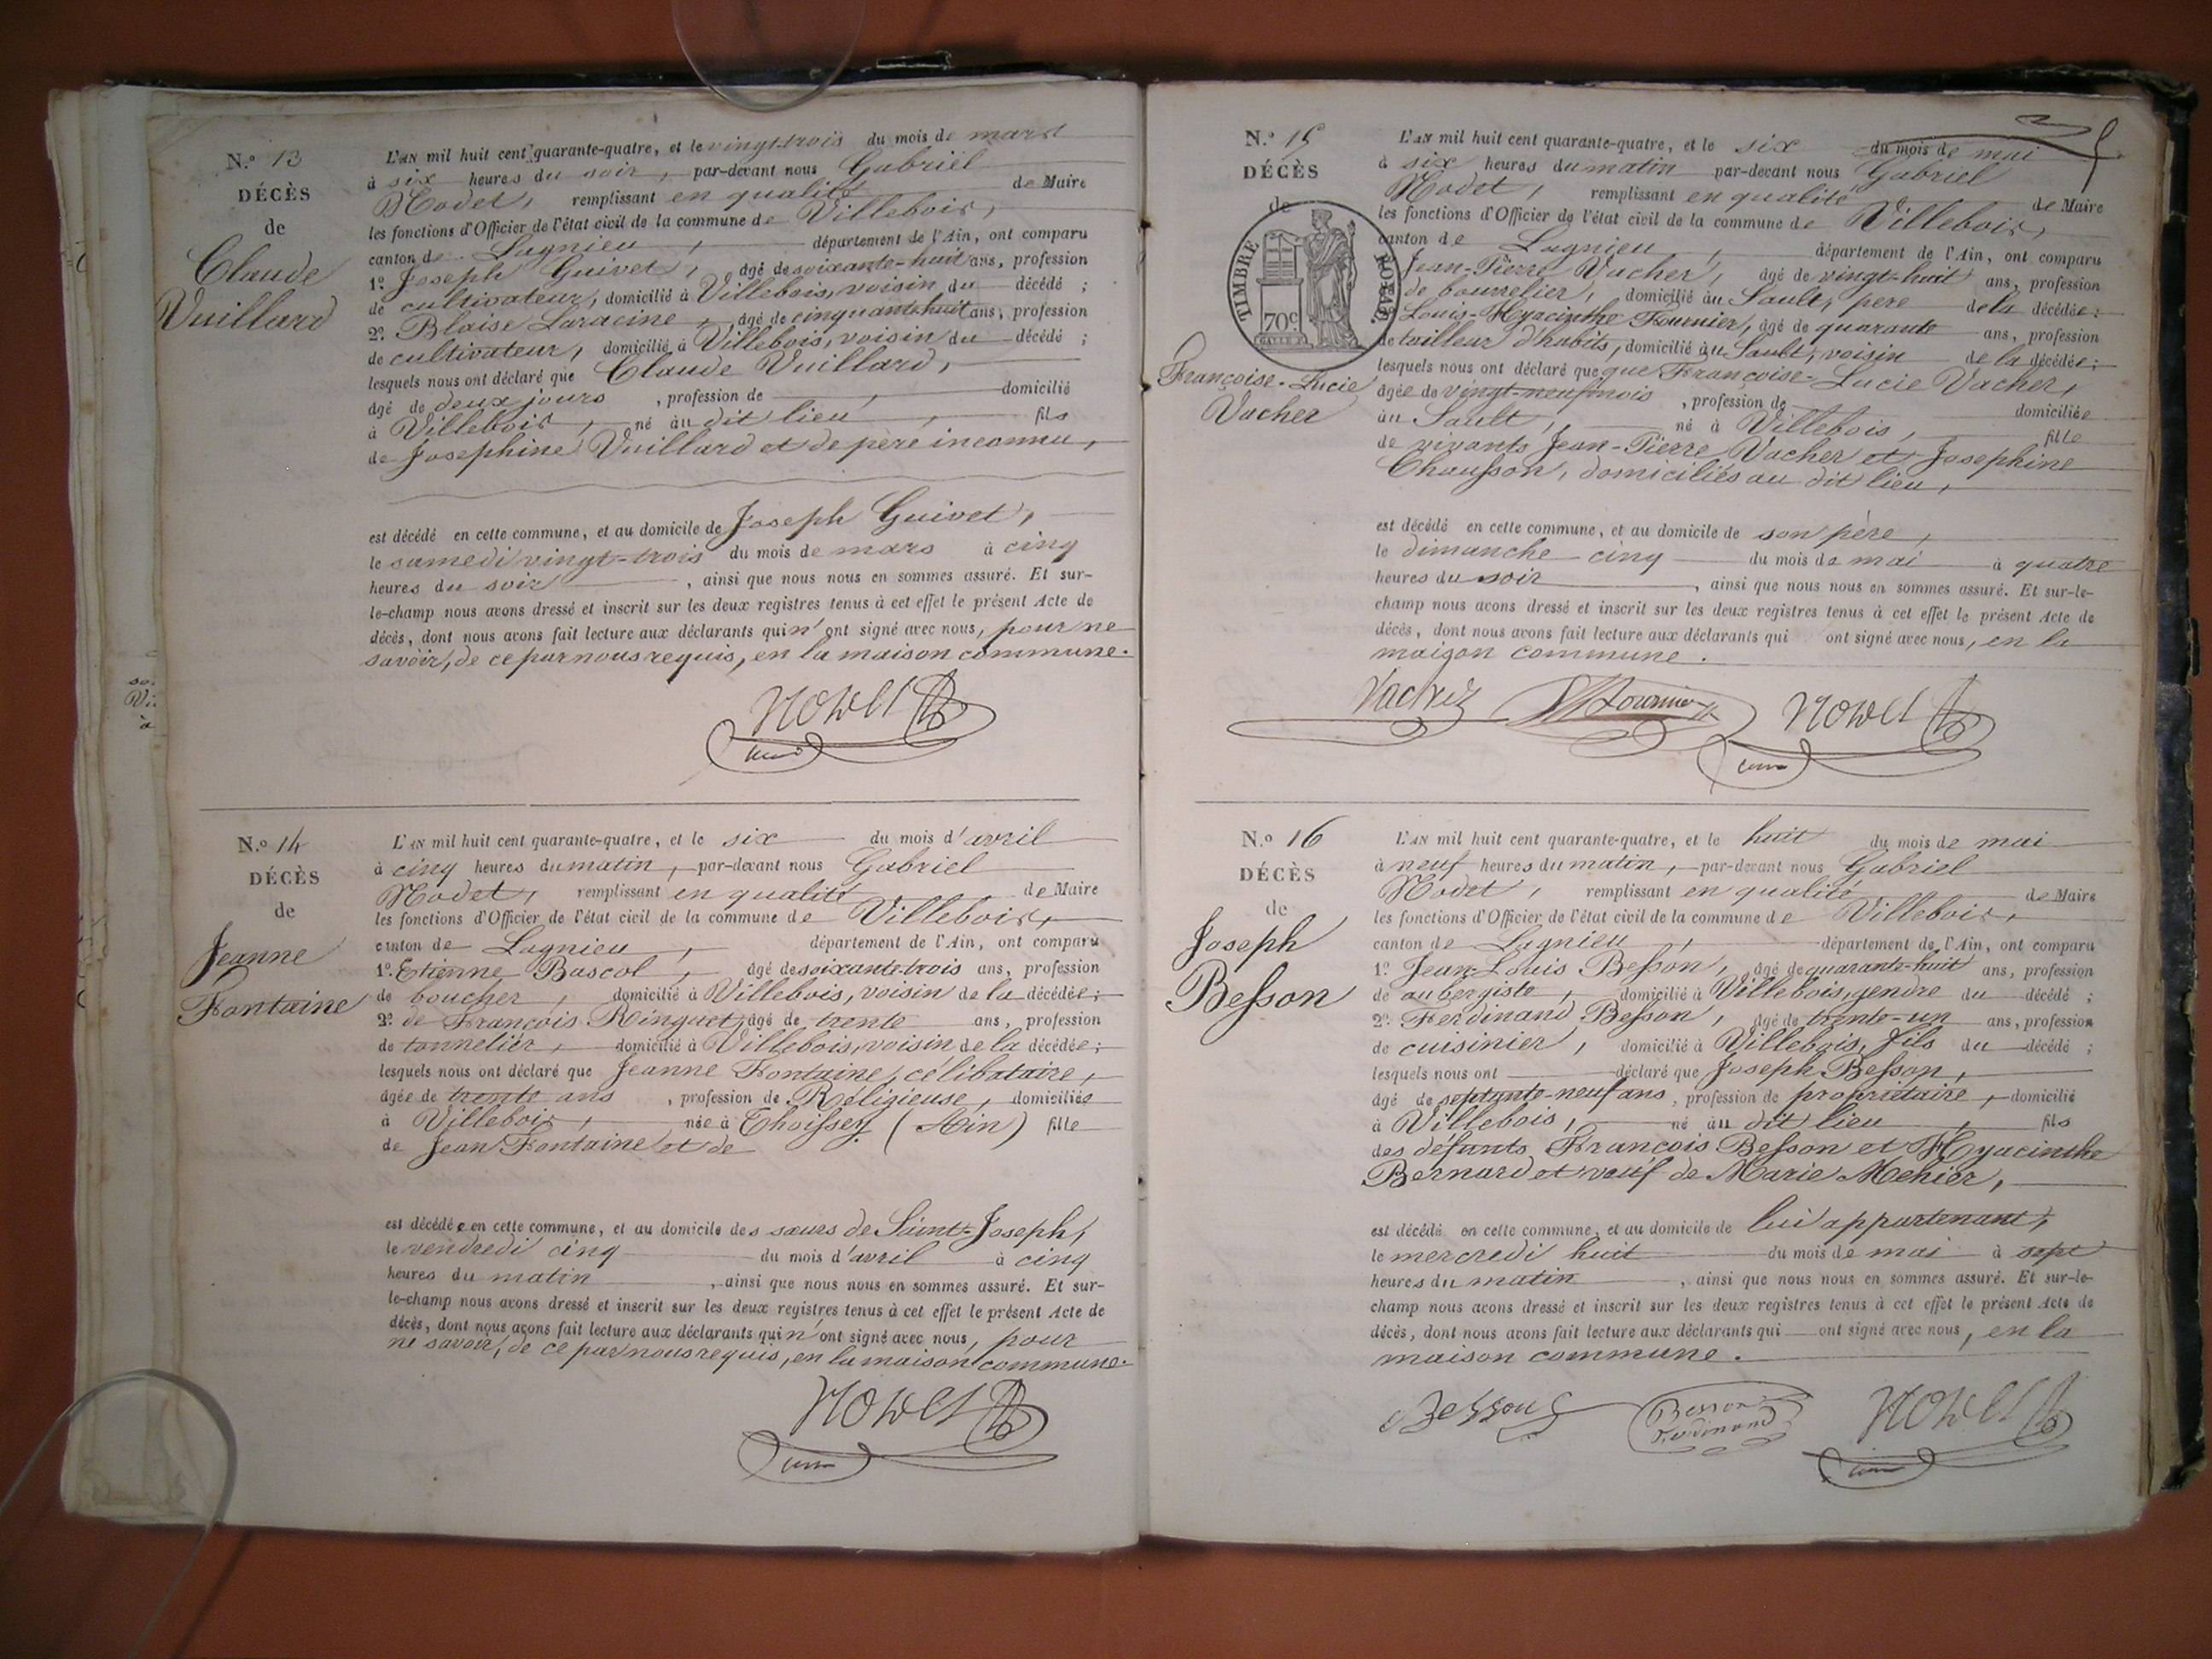 N.° 13
DÉCÈS
de
Claude
Vuillard
L'AN mil huit cent quarante-quatre, et le vingt-trois du mois de mars
à six heures du soir, par-devant nous Gabriel
Nodet, remplissant en qualité de Maire
les fonctions d'Officier de l'état civil de la commune de Villebois,
canton de Lagnieu, département de l'Ain, ont comparu
1.° Joseph Guivet, âgé de soixante-huit ans, profession
de cultivateur, domicilié à Villebois, voisin du décédé ;
2.° Blaise Laracine, âgé de cinquante-huit ans, profession
de cultivateur, domicilié à Villebois, voisin du décédé ;
lesquels nous ont déclaré que Claude Vuillard,
âgé de deux jours, profession de , domicilié
à Villebois, né au dit lieu, fils
de Josephine Vuillard et de père inconnu,
est décédé en cette commune, et au domicile de Joseph Guivet,
le samedi vingt-trois du mois de mars à cinq
heures du soir, ainsi que nous nous en sommes assuré. Et sur-
le-champ nous avons dressé et inscrit sur les deux registres tenus à cet effet le présent Acte de
décès, dont nous avons fait lecture aux déclarants qui n'ont signé avec nous, pour ne
savoir, de ce par nous requis, en la maison commune.
Nodet
N.° 14
DÉCÈS
de
Jeanne
Fontaine
L'AN mil huit cent quarante-quatre, et le six du mois d'avril
à cinq heures du matin, par-devant nous Gabriel
Nodet, remplissant en qualité de Maire
les fonctions d'Officier de l'état civil de la commune de Villebois,
canton de Lagnieu, département de l'Ain, ont comparu
1.° Etienne Bascol, âgé de soixante-trois ans, profession
de boucher, domicilié à Villebois, voisin de la décédée ;
2.° de François Ringuet, âgé de trente ans, profession
de tonnelier, domicilié à Villebois, voisin de la décédée ;
lesquels nous ont déclaré que Jeanne Fontaine, célibataire,
âgée de trente ans, profession de Réligieuse, domiciliée
à Villebois, née à Thoissey (Ain) fille
de Jean Fontaine et de
est décédée en cette commune, et au domicile des sœurs de Saint-Joseph,
le vendredi cinq du mois d'avril à cinq
heures du matin, ainsi que nous nous en sommes assuré. Et sur-
le-champ nous avons dressé et inscrit sur les deux registres tenus à cet effet le présent Acte de
décès, dont nous avons fait lecture aux déclarants qui n'ont signé avec nous, pour
ne savoir, de ce par nous requis, en la maison commune.
Nodet
N.° 15
DÉCÈS
de
TIMBRE ROYAL
70c
Françoise-Lucie
Vacher
L'AN mil huit cent quarante-quatre, et le six du mois de mai
à six heures du matin par-devant nous Gabriel
Nodet, remplissant en qualité de Maire
les fonctions d'Officier de l'état civil de la commune de Villebois,
canton de Lagnieu, département de l'Ain, ont comparu
Jean-Pierre Vacher, âgé de vingt-huit ans, profession
de bourrelier, domicilié au Sault, père de la décédée ;
Louis-Hyacinthe Fournier, âgé de quarante ans, profession
de tailleur d'habits, domicilié au Sault, voisin de la décédée ;
lesquels nous ont déclaré que que Françoise-Lucie Vacher,
âgée de vingt-neuf mois, profession de domiciliée
au Sault, né à Villebois, fille
de vivants Jean-Pierre Vacher et Josephine
Chausson, domiciliés au dit lieu,
est décédé en cette commune, et au domicile de son père,
le dimanche cinq du mois de mai à quatre
heures du soir, ainsi que nous nous en sommes assuré. Et sur-le-
champ nous avons dressé et inscrit sur les deux registres tenus à cet effet le présent Acte de
décès, dont nous avons fait lecture aux déclarants qui ont signé avec nous, en la
maison commune.
Vacher Nodet
N.° 16
DÉCÈS
de
Joseph
Besson
L'AN mil huit cent quarante-quatre, et le huit du mois de mai
à neuf heures du matin, par-devant nous Gabriel
Nodet, remplissant en qualité de Maire
les fonctions d'Officier de l'état civil de la commune de Villebois,
canton de Lagnieu, département de l'Ain, ont comparu
1.° Jean-Louis Besson, âgé de quarante-huit ans, profession
de aubergiste, domicilié à Villebois, gendre du décédé ;
2.° Ferdinand Besson, âgé de trente-un ans, profession
de cuisinier, domicilié à Villebois, fils du décédé ;
lesquels nous ont déclaré que Joseph Besson,
âgé de septante-neuf ans, profession de propriétaire, domicilié
à Villebois, né au dit lieu, fils
des défunts François Besson et Hyacinthe
Bernard et veuf de Marie Mehier,
est décédé en cette commune, et au domicile de lui appartenant,
le mercredi huit du mois de mai à sept
heures du matin, ainsi que nous nous en sommes assuré. Et sur-le-
champ nous avons dressé et inscrit sur les deux registres tenus à cet effet le présent Acte de
décès, dont nous avons fait lecture aux déclarants qui ont signé avec nous, en la
maison commune.
Besson Besson Ferdinand Nodet